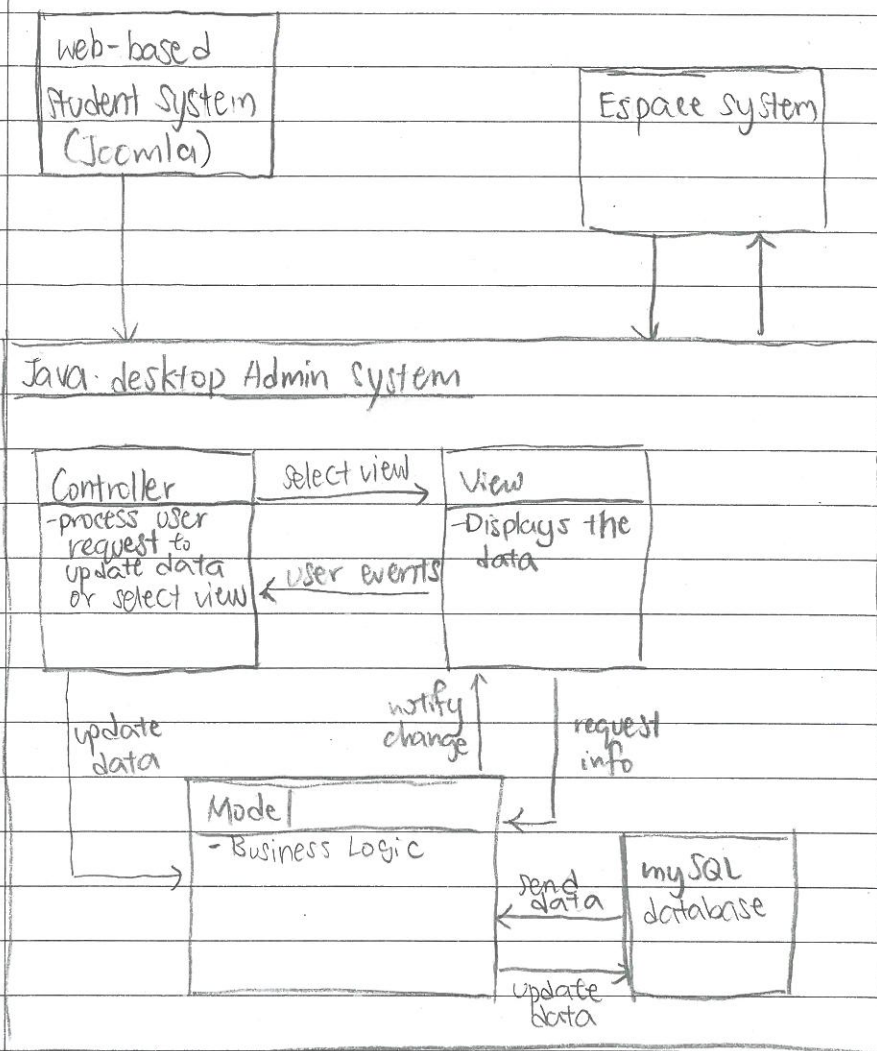 web-based
student system
(Joomla)
Espace system
Java desktop Admin system
Controller
-process user
request to
update data
or select view
select view
user events
View
-Displays the
data
update
data
notify
change
request
info
Model
- Business Logic
send
data
update
data
mySQL
database